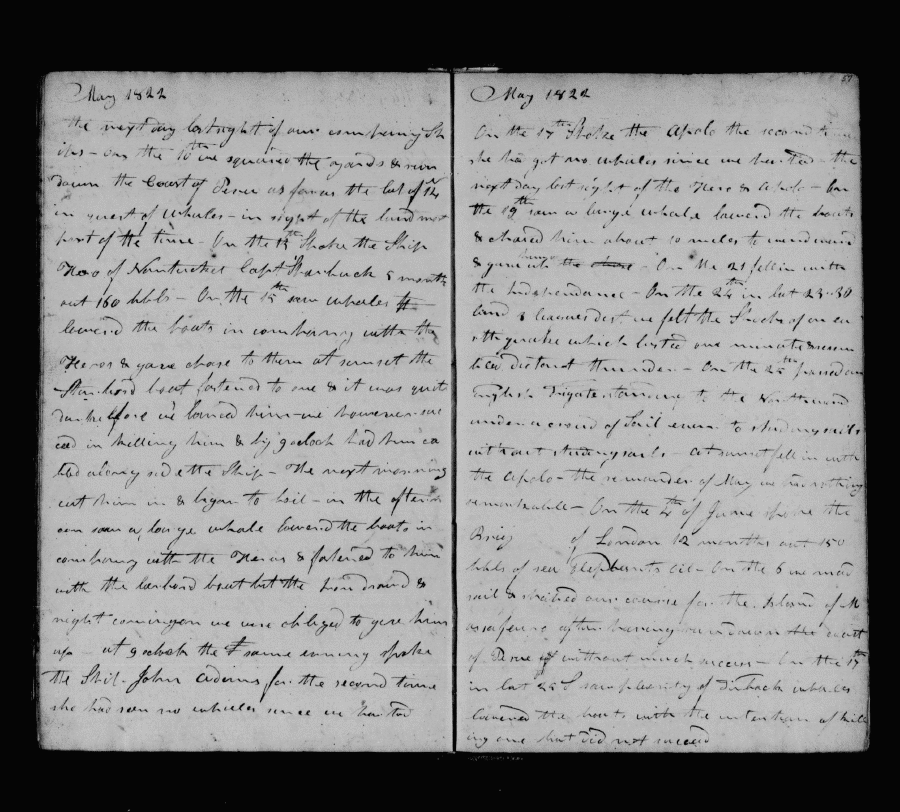 May 1822
the next day lost sight of our company Sh
ips - on the 10th we squared the yards & run
down the Coast of Peru as far as the lat of 12
in quest of whales - in sight of the land most
part of the time - On the 13th Spoke the Ship
Hero of Nantucket Capt Starbuck 8 months
out 160 bbls - On the 15th saw whales
lowered the boats in company with the
Heros & gave chase to them at sunset the
Starbord boat fastened to one & it was quit
dark before we lanced him - we however suc
ed in killing him & by 9 oclock had him ca
bled along side the Ship - The next morning
cut him in & began to boil - in the aftern
oon saw a large whale lowered the boats in
company with the Heros & fastened to him
with the larbord boat but the Iron drawd &
night coming on we were obliged to give him
up - at 9 oclock the same evening spoke
the Ship John Adams for the second time
she had seen no whales since we parted
57
May 1822
On the 17th Spoke the Apolo the second time
she has got no whales since we parted - the
next day lost sight of the Hero & Apolo - On
the 19th saw a large whale lowerd the boats
& chased him about 10 miles to windward
& gave up - On the 21 fell in with
the Independance - On the 24th in lat 23-30
land 8 leagues dist we felt the Shock of an ea
rthquake which lasted one minute & resem
bled distant thunder - On the 25th passed an
English Frigate standing to the Northward
under a crowd of Sail even to studingsails
without studingsails - at sunset fell in with
the Apolo - the remainder of May we had nothing
remarkable - On the 4th of June spoke the
Brig of London 12 months out 150
bbls of sea Elephants oil - On the 6 we mad
sail & shaped our course for the Island of M
assafuero after having run down the coast
of Peru without much success - On the 17th
in lat 22 S saw plenty of finback whales
lowered the boats with the intention of kill
ing one but did not succeed